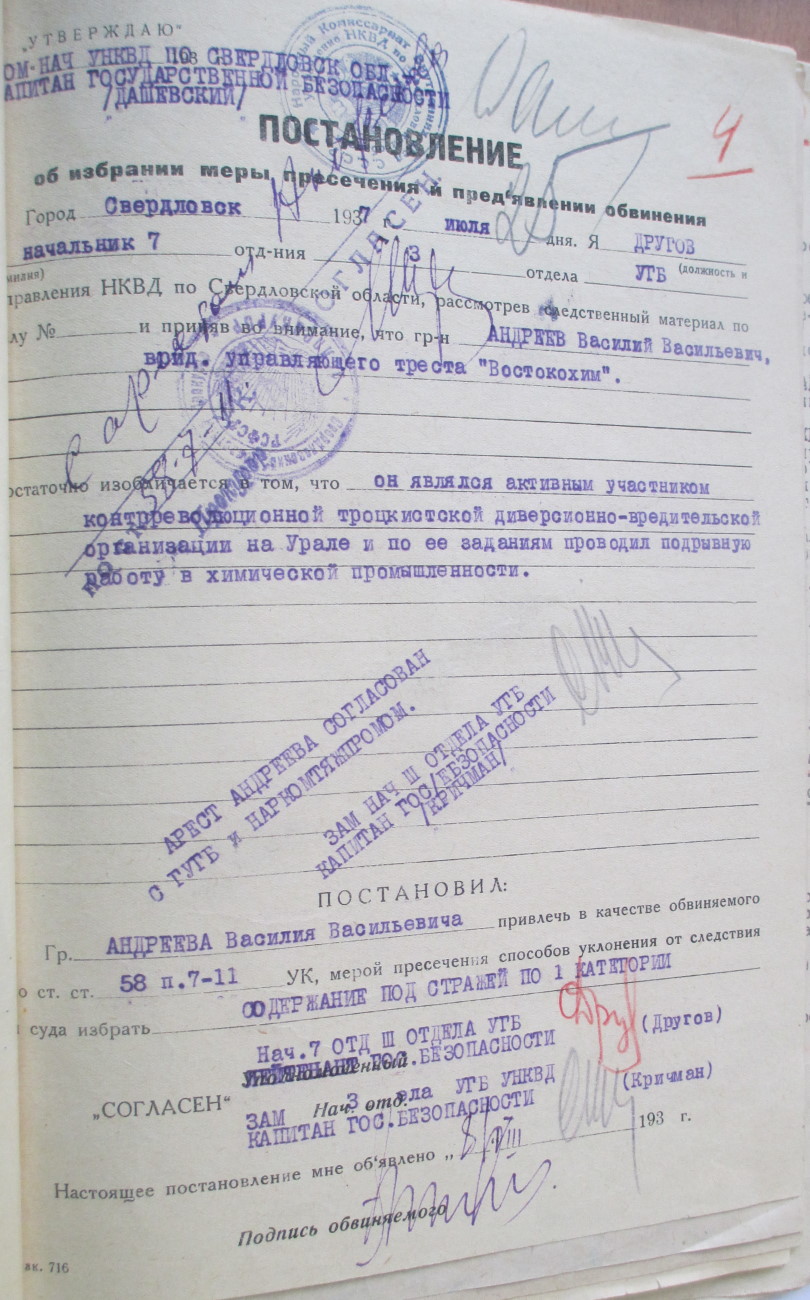 „УТВЕРЖДАЮ“
ОМ-НАЧ УНКВД ПО СВЕРДЛОВСК ОБЛ.
АПИТАН ГОСУДАРСТВЕННОЙ БЕЗОПАСНОСТИ
/ДАШЕВСКИЙ/
4
ПОСТАНОВЛЕНИЕ
об избрании меры пресечения и пред'явлении обвинения
Город Свердловск 1937 г. июля дня. Я ДРУГОВ
начальник 7 отд-ния 3 отдела УГБ (должность и
милия)
правления НКВД по Свердловской области, рассмотрев следственный материал по
лу № и приняв во внимание, что гр-н АНДРЕЕВ Василий Васильевич,
врид. управляющего треста "Востокохим".
СОГЛАСЕН
остаточно изобличается в том, что он являлся активным участником
контрреволюционной троцкистской диверсионно-вредительской
организации на Урале и по ее заданиям проводил подрывную
работу в химической промышленности.
АРЕСТ АНДРЕЕВА СОГЛАСОВАН
С ГУГБ и НАРКОМТЯЖПРОМОМ.
ЗАМ НАЧ Ш ОТДЕЛА УГБ
КАПИТАН ГОС/БЕЗОПАСНОСТИ
/КРИЧМАН/
ПОСТАНОВИЛ:
Гр. АНДРЕЕВА Василия Васильевича привлечь в качестве обвиняемого
о ст. ст. 58 п.7-11 УК, мерой пресечения способов уклонения от следствия
суда избрать СОДЕРЖАНИЕ ПОД СТРАЖЕЙ ПО 1 КАТЕГОРИИ
Нач.7 ОТД Ш ОТДЕЛА УГБ
ЛЕЙТЕНАНТ ГОС.БЕЗОПАСНОСТИ (Другов)
Уполномоченный
„СОГЛАСЕН“ Нач. отд.
ЗАМ 3 ела УГБ УНКВД (Кричман)
КАПИТАН ГОС.БЕЗОПАСНОСТИ
Настоящее постановление мне об'явлено „ 8/VIII 193 г.
Подпись обвиняемого
ак. 716